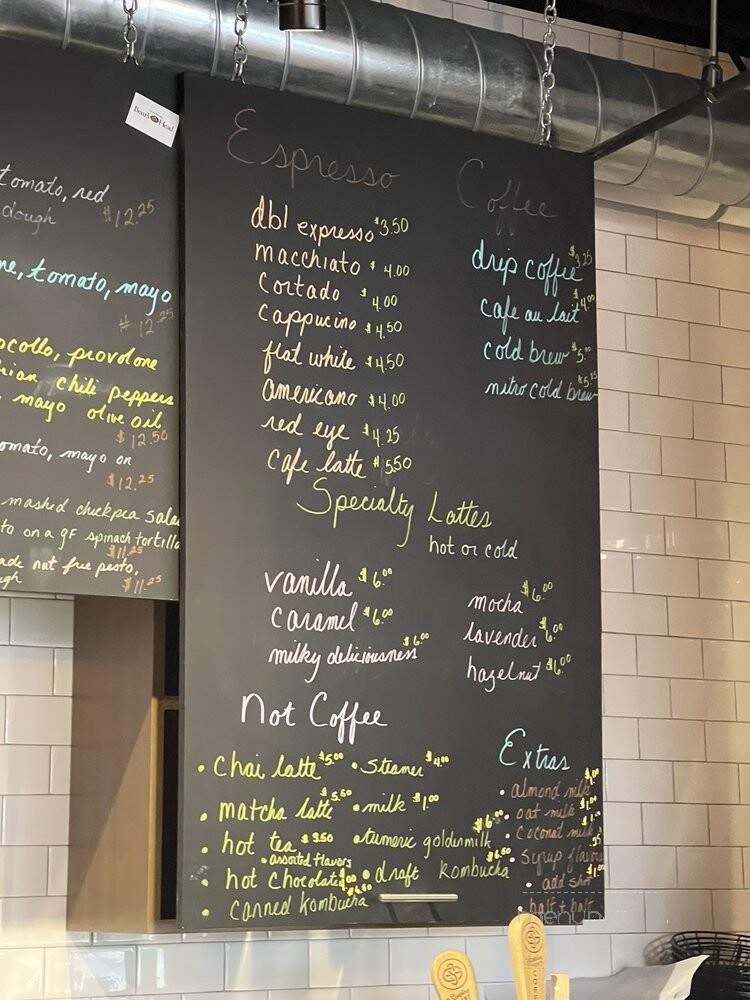 Boar's Head
tomato, red
dough $12.25
tomato, mayo
$12.25
provolone
chili peppers
mayo olive oil
$12.50
mayo on
$12.25
mashed chickpea
to on a gf spinach tortilla
$11.25
nut free pesto,
$11.25
Espresso
dbl expresso $3.50
macchiato $4.00
Cortado $4.00
Cappucino $4.50
flat white $4.50
americano $4.00
red eye $4.25
cafe latte $5.50
Coffee
drip coffee $3.25
cafe au lait $4.00
cold brew $5.00
nitro cold brew
Specialty Lattes
hot or cold
vanilla $6.00
caramel $6.00
milky deliciousness $6.00
mocha $6.00
lavender $6.00
hazelnut $6.00
Not Coffee
• Chai latte $5.00 • Steamer $4.00
• matcha latte $5.50 • milk $1.00
• hot tea $3.50 • tumeric goldenmilk $6.00
• assorted flavors
• hot chocolate • draft Kombucha $6.50
• canned kombucha $6.50
Extras
• almond milk
• oat milk
• coconut milk
• syrup
• add shot
• half + half
menupix